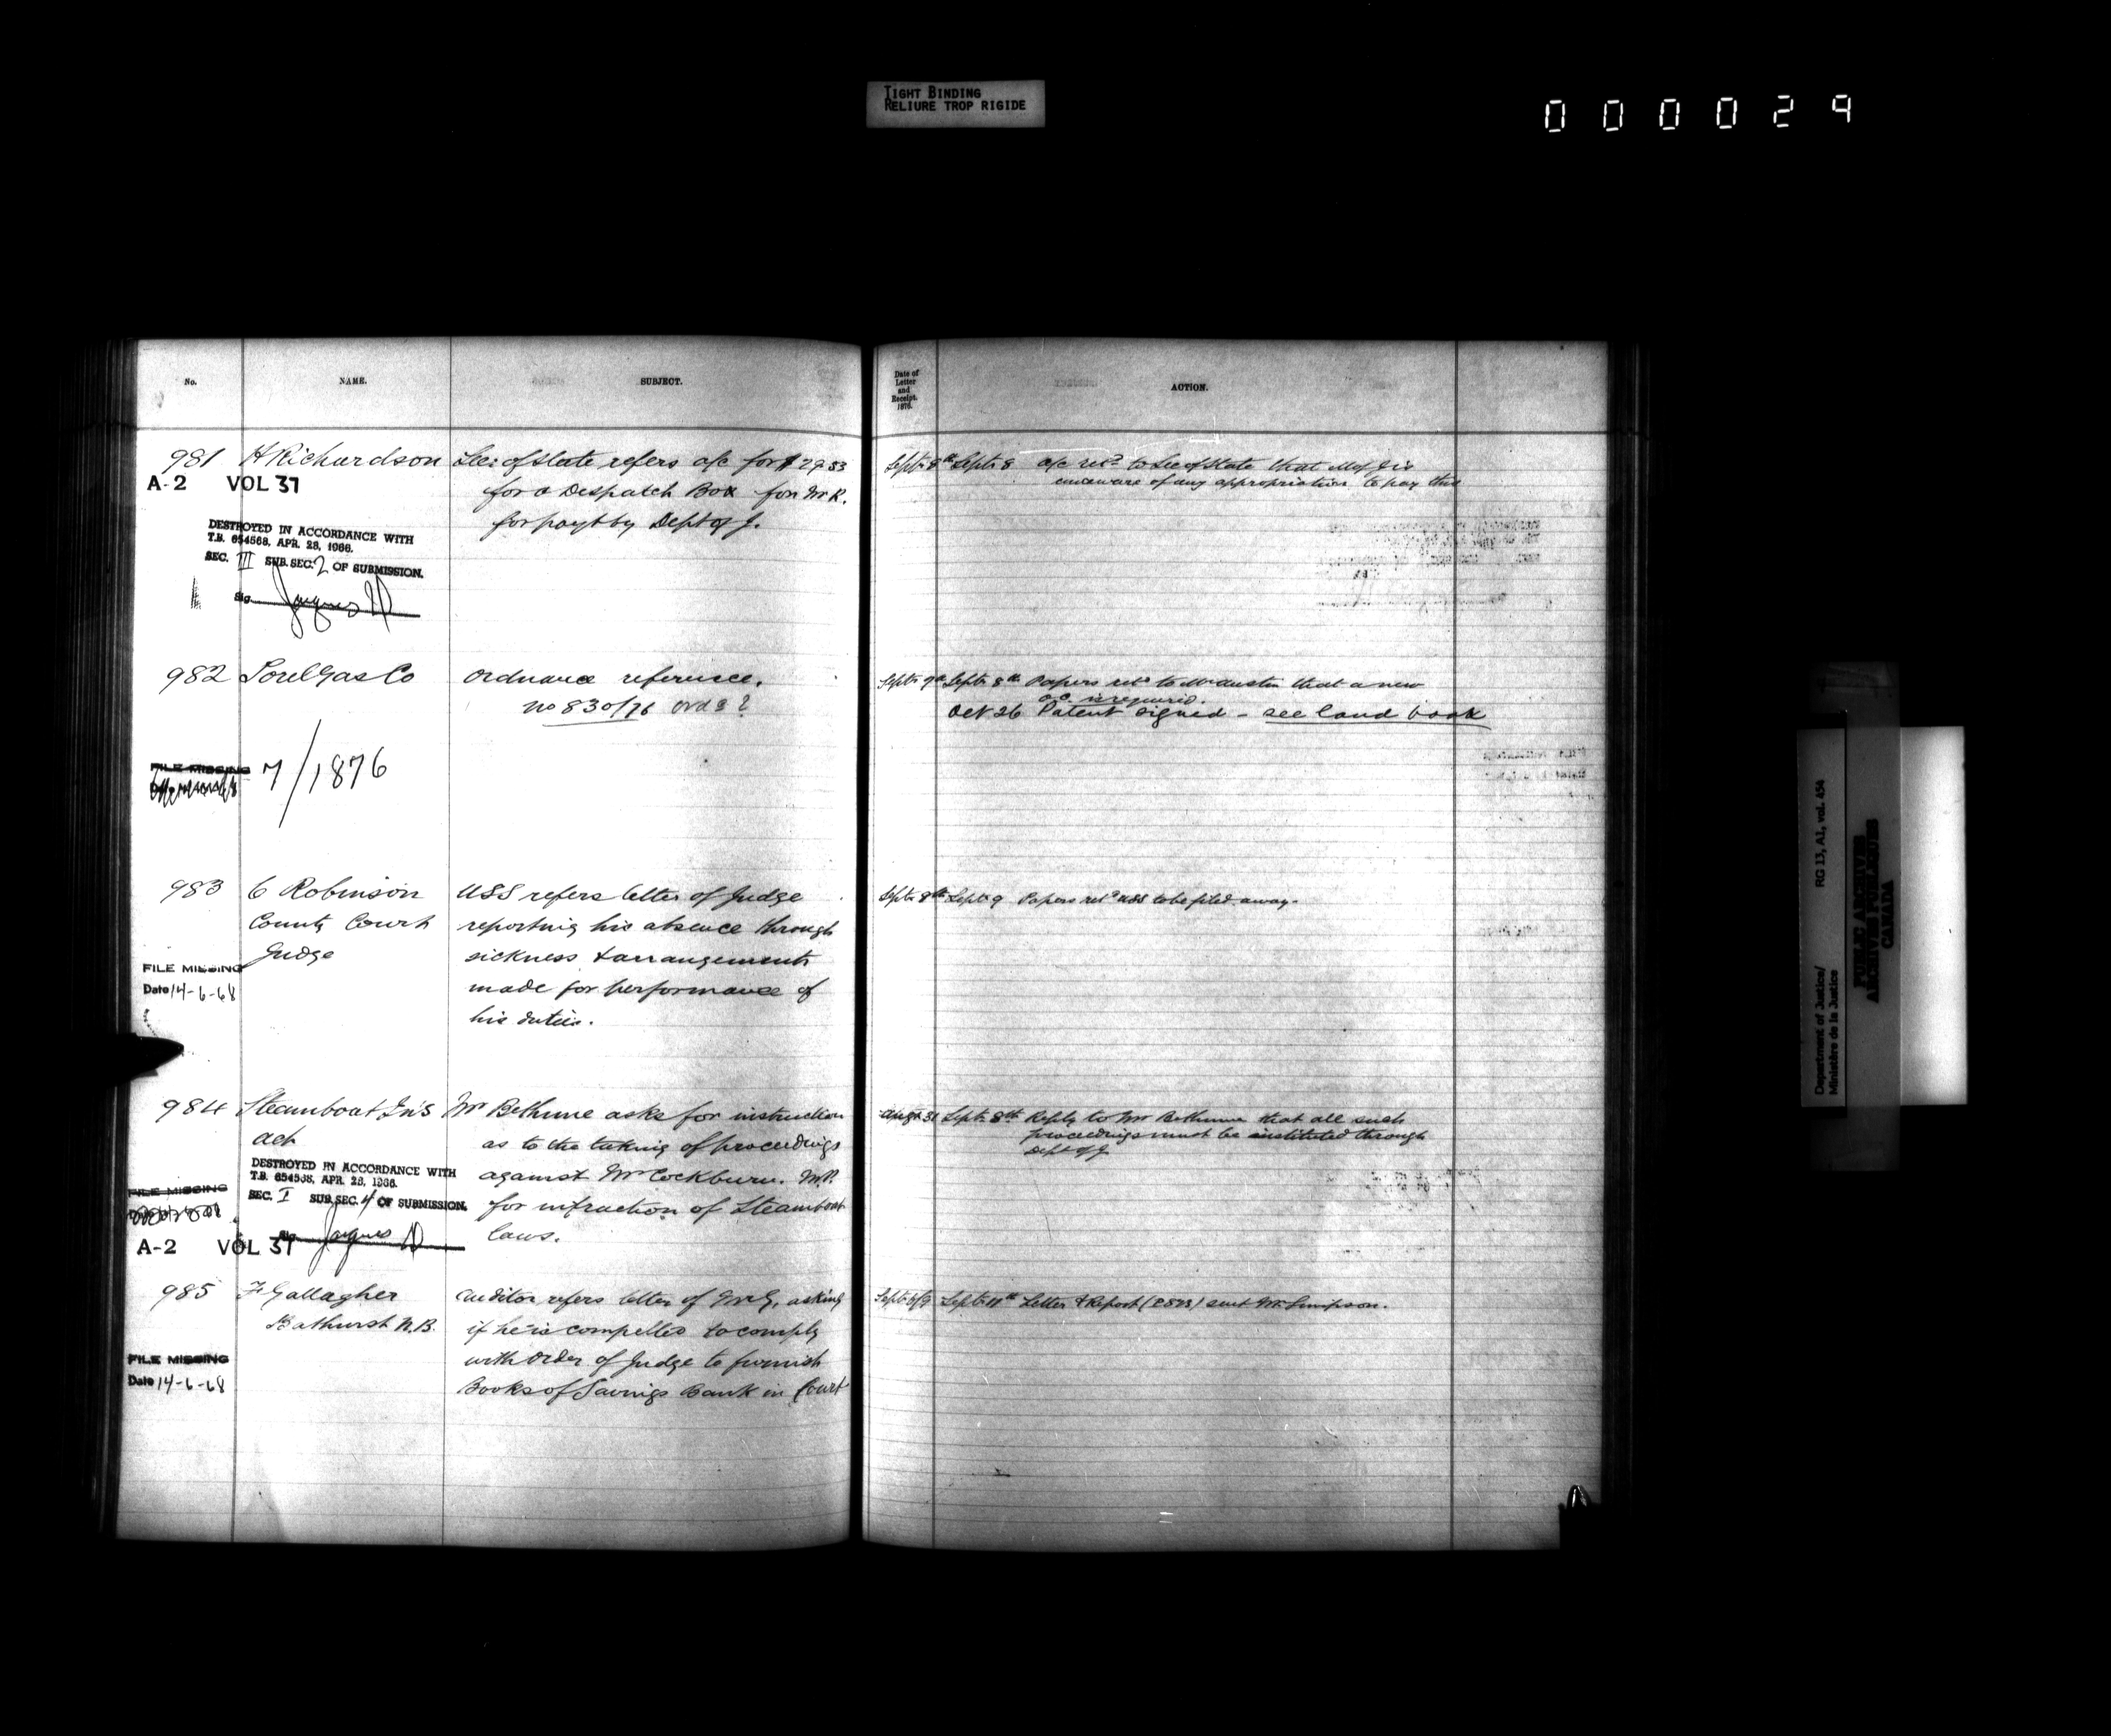 TIGHT BINDING
RELIURE TROP RIGIDE
000029
No.
NAME.
SUBJECT.
Date of
Letter
and
Receipt.
1876.
ACTION.
981 H Richardson Sec: of State refers a/c for $29.83
for a Despatch Box for Mr R.
for payt by Dept of J.
A-2 VOL 37
DESTROYED IN ACCORDANCE WITH
T.B. 654568, APR. 28, 1966.
SEC. III SUB.SEC. 2 OF SUBMISSION.
Sig.
Sept 8th Sept 8 a/c retd to Sec of State that M of J is
unaware of any appropriation to pay this
982 Sorel Gas Co Ordnance reference.
No 830/76 Ords?
FILE MISSING
7/1876
Sept 9th Sept 8th Papers retd to Mr Austin that a new
o.c. is required.
Oct 26 Patent signed - see land book
983 C Robinson USS refers letter of Judge
County Court reporting his absence through
Judge sickness & arrangements
made for performance of
his duties.
FILE MISSING
Date 14-6-68
Sept 8th Sept 9 Papers retd USS to be filed away.
984 Steamboat Ins Mr Bethune asks for instruction
Act as to the taking of proceedings
against Mr Cockburn. M.P.
for infraction of Steamboat
laws.
DESTROYED IN ACCORDANCE WITH
T.B. 654568, APR. 28, 1966.
SEC. I SUB.SEC. 4 OF SUBMISSION.
FILE MISSING
Sig.
A-2 VOL 37
Augt 31 Sept 8th Reply to Mr Bethune that all such
proceedings must be instituted through
Dept of J
985 F Gallagher Auditor refers letter of Mr G. asking
Bathurst N.B. if he is compelled to comply
with order of Judge to furnish
Books of Savings Bank in Court
FILE MISSING
Date 14-6-68
Sept 6/9 Sept 11th Letter & Report sent Mr Simpson.
Department of Justice/
Ministère de la Justice
RG 13, A1, vol. 454
PUBLIC ARCHIVES
ARCHIVES PUBLIQUES
CANADA